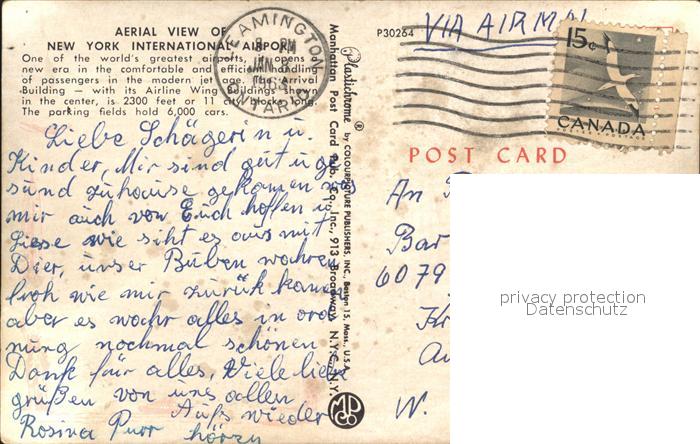 AERIAL VIEW OF
NEW YORK INTERNATIONAL AIRPORT
One of the world's greatest airports, it opens a
new era in the comfortable and efficient handling
of passengers in the modern jet age. The Arrival
Building — with its Airline Wing Buildings shown
in the center, is 2300 feet or 11 city blocks long.
The parking fields hold 6,000 cars.
LEAMINGTON
PM
JAN 8
ONTARIO
Plastichrome ® by COLOURPICTURE PUBLISHERS, INC., Boston 15, Mass., U.S.A.
Manhattan Post Card Pub. Co., Inc., 913 Broadway, N.Y.C., N.Y.
P30264
VIA AIRMAIL
15¢
CANADA
POST CARD
Liebe Schagerin u.
Kinder, Mir sind gut u ge
sünd zuhause gekomen
mir auch von Euch hoffen u
Liese wie siht es aus mit
Dier, unser Buben wahren
froh wie mir zurück kamen
aber es wahr alles in ord
nung nochmal schönen
Dank für alles, Viele liebe
grüßen von uns allen
Rosina Purr Aufs wieder
hörzu
An
Bar
6079
Kr
Au
W.
MPCo
privacy protection
Datenschutz